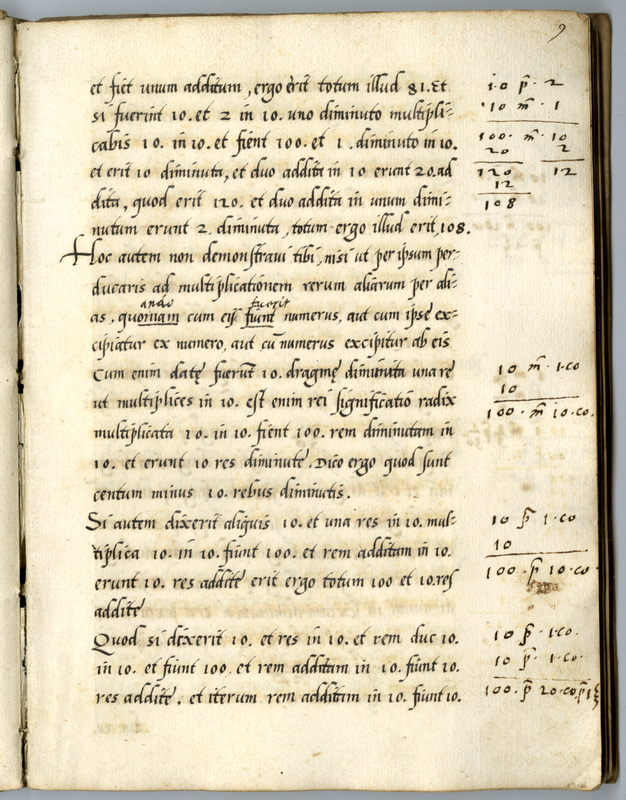 9
et fiet unum additum, ergo erit totum illud 81. Et
si fuerint 10. et 2 in 10. uno diminuto multipli-
cabis 10. in 10. et fient 100. et 1. diminuto in 10.
et erit 10 diminuta, et duo addita in 10 erunt 20. ad
dita, quod erit 120. et duo addita in unum dimi-
nutum erunt 2. diminuta, totum ergo illud erit, 108.
Hoc autem non demonstravi tibi, nisi ut per ipsum per-
ducaris ad multiplicationem rerum aliarum per ali-
ando fuerit
as, quoniam cum eis fiunt numerus, aut cum ipse ex-
cipiatur ex numero, aut cū numerus excipitur ab eis
Cum enim datę fuerūt 10. dragmę diminuta una re
ut multiplices in 10. est enim rei significatio radix
multiplicata 10. in 10. fient 100. rem diminutam in
10. et erunt 10 res diminutę. Dico ergo quod sunt
centum minus 10. rebus diminutis.
Si autem dixerit aliquis 10. et una res in 10. mul-
tiplica 10. in 10. fiunt 100. et rem additam in 10.
erunt 10. res additę erit ergo totum 100 et 10. res
additę
Quod si dixerit 10. et res in 10. et rem duc 10.
in 10. et fiunt 100, et rem additam in 10. fiunt 10.
res additę. et iterum rem additam in 10. fiunt 10.
10 p̃ · 2
10 m̃ · 1
100 · m̃ · 10
20 2
120 12
12
108
10 m̃ · 1 · co
10
100 · m̃ 10 · co.
10 p̃ 1 · co
10
100 · p̃ 10 · co
10 p̃ · 1 · co.
10 p̃ · 1 · co
100 · p̃ 20 · co p̃ 1